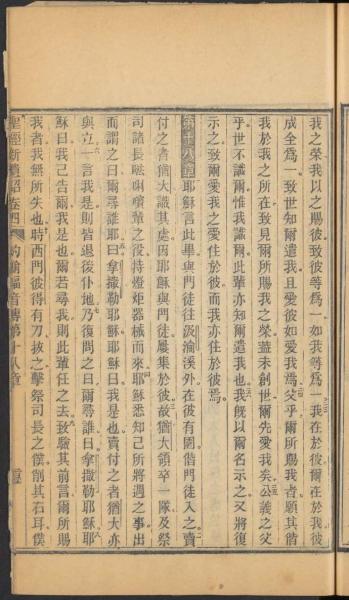 我之榮我以之賜彼致彼等爲一如我等爲一我在於彼爾在於我彼
成全爲一致世知爾遣我且愛彼如愛我焉父乎爾所賜我者願其偕
我於我之所在致見爾所賜我之榮蓋未創世爾先愛我矣公義之父
乎世不識爾惟我識爾此輩亦知爾遣我也我旣以爾名示之又將復
示之致爾愛我之愛住於彼而我亦住於彼焉
第十八章耶穌言此畢與門徒往汲淪溪外在彼有園偕門徒入之賣
付之者猶大識其處因耶穌與門徒屢集於彼故猶大領卒一隊及祭
司諸長𠵽唎㘔輩之役持燈炬器械而來耶穌悉知己所將遇之事出
而謂之曰爾尋誰耶曰拿撒勒耶穌耶穌曰我是也賣付之者猶大亦
與立一言我是則皆退後仆地乃復問之曰爾尋誰曰拿撒勒耶穌耶
穌曰我己告爾我是也爾若尋我則此輩任之去致驗其前言爾所賜
我者我無所失也時西門彼得有刀拔之擊祭司長之僕削其右耳僕
聖經新遺詔卷四 約翰福音傳第十八章